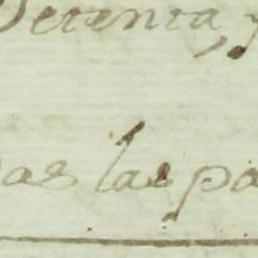 Setenta, y
das las pa